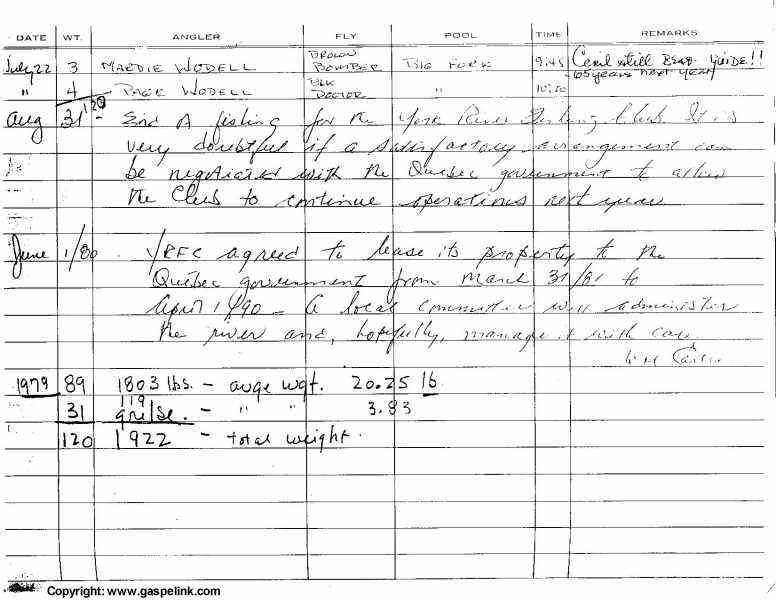 DATE WT. ANGLER FLY POOL TIME REMARKS
July 22 3 MARDIE WODELL BROWN BOMBER BIG FORK 9:45 Cecil still BEAR GUIDE!!
65 years next year
" 4 PAGE WODELL BLK DOCTOR " 10:20
120
Aug 31 - End of fishing for the York River Fishing Club. It is
very doubtful if a satisfactory arrangement can
be negotiated with the Quebec government to allow
the Club to continue operations next year
June 1/80. YRFC agreed to lease its property to the
Quebec government from March 31/81 to
April 1/90 - A local committee will administer
the river and, hopefully, manage it with care
1979 89 1803 lbs. - avge wgt. 20.25 lb
119
31 grilse. - " " 3.83
120 1922 - total weight.
Copyright: www.gaspelink.com